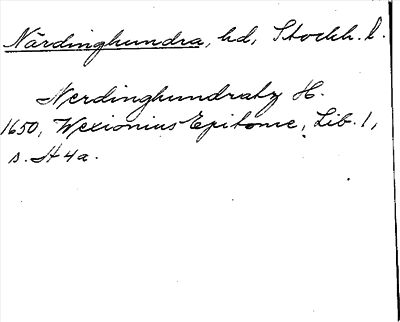 Närdinghundra, hd, Stockh. l.
Nerdinghundratz H.
1650, Wexionius Epitome, Lib. 1,
s. H4a.